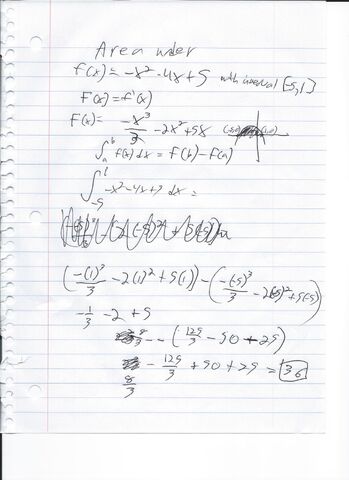 Area under
f(x) = -x² - 4x + 5 with interval [-5,1]
F(x) = f'(x)
F(x) = -x³/3 - 2x² + 5x (-5,0) (1,0)
∫_a^b f(x) dx = F(b) - F(a)
∫_-5^1 -x² - 4x + 5 dx =
(-(1)³/3 - 2(1)² + 5(1)) - (-(-5)³/3 - 2(-5)² + 5(-5))
-1/3 - 2 + 5
8/3 - (125/3 - 50 + 25)
8/3 - 125/3 + 50 + 25 = 36